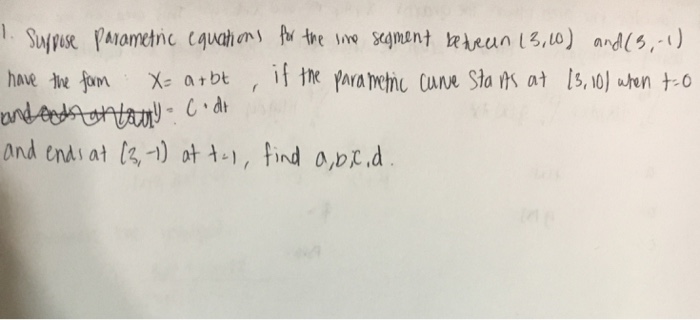 1. Suppose parametric equations for the line segment between (3,10) and (3,-1)
have the form x= a+bt , if the parametric curve starts at (3,10) when t=0
y= c+dt
and ends at (3,-1) at t=1, find a,b,c,d.